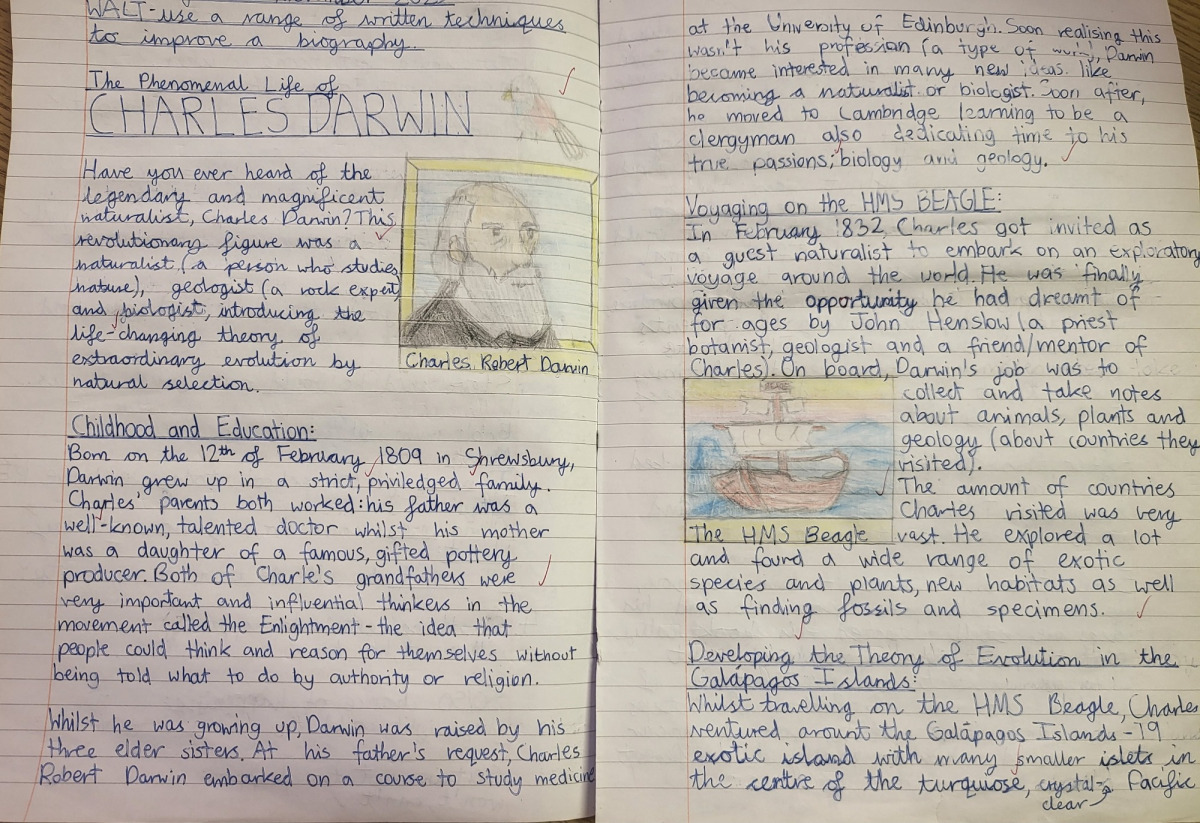 WALT-use a range of written techniques
to improve a biography.
The Phenomenal Life of
CHARLES DARWIN
Have you ever heard of the
legendary and magnificent
naturalist, Charles Darwin? This
revolutionary figure was a
naturalist (a person who studies
nature), geologist (a rock expert)
and biologist, introducing the
life-changing theory of
extraordinary evolution by
natural selection.
Charles Robert Darwin
Childhood and Education:
Born on the 12th of February 1809 in Shrewsbury,
Darwin grew up in a strict, priviledged family.
Charles' parents both worked: his father was a
well-known, talented doctor whilst his mother
was a daughter of a famous, gifted pottery
producer. Both of Charle's grandfathers were
very important and influential thinkers in the
movement called the Enlightment - the idea that
people could think and reason for themselves without
being told what to do by authority or religion.
Whilst he was growing up, Darwin was raised by his
three elder sisters. At his father's request, Charles
Robert Darwin embarked on a course to study medicine
at the University of Edinburgh. Soon realising this
wasn't his profession (a type of Darwin
became interested in many new ideas like
becoming a naturalist or biologist. Soon after,
he moved to Cambridge learning to be a
clergyman also dedicating time to his
true passions; biology and geology.
Voyaging on the HMS BEAGLE:
In February 1832, Charles got invited as
a guest naturalist to embark on an exploratory
voyage around the world. He was finally
given the opportunity he had dreamt of
for ages by John Henslow (a priest
botanist, geologist and a friend/mentor of
Charles). On board, Darwin's job was to
collect and take notes
about animals, plants and
geology (about countries they
visited).
The amount of countries
Charles visited was very
The HMS Beagle
vast. He explored a lot
and found a wide range of exotic
species and plants, new habitats as well
as finding fossils and specimens.
Developing the Theory of Evolution in the
Galápagos Islands:
Whilst travelling on the HMS Beagle, Charles
ventured arount the Galápagos Islands - 19
exotic island with many smaller islets in
the centre of the turquiose, crystal-clear Pacific